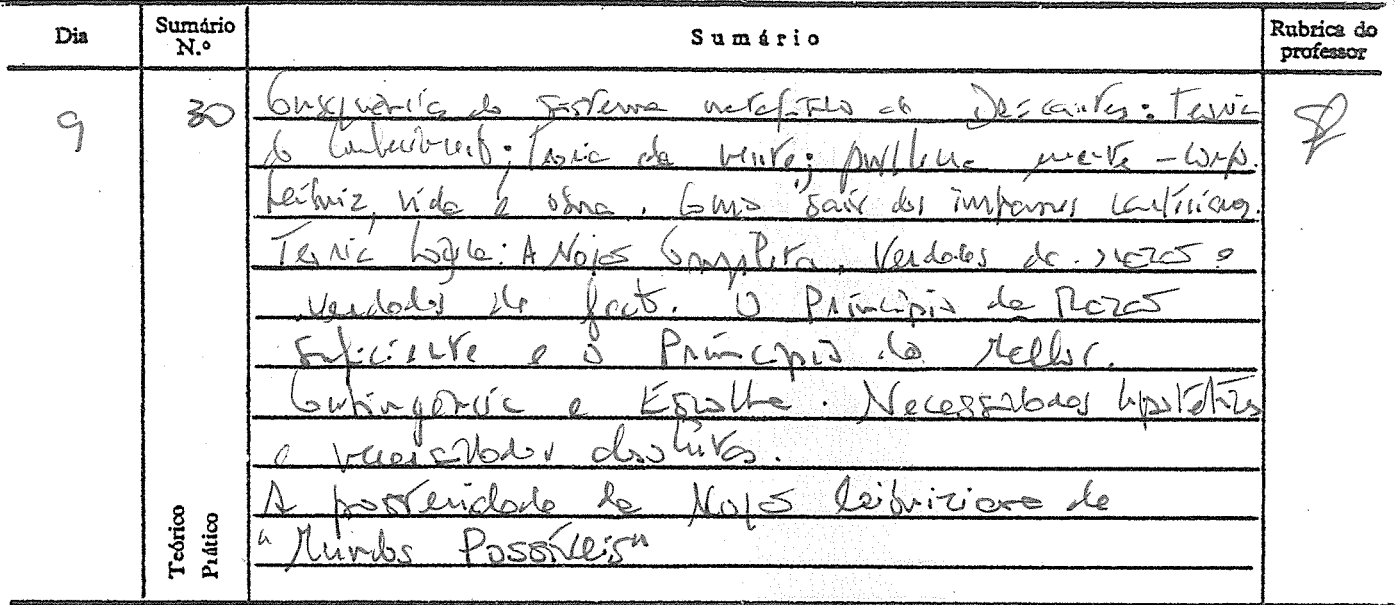 Dia
Sumário N.º
Sumário
Rubrica do professor
9
30
Consequências do sistema metafísico de Descartes: Teoria
do Conhecimento; Teoria da mente; problema mente-corpo.
Leibniz, vida e obra. Como sair dos impasses cartesianos.
Teoria Lógica: A Noção Completa. Verdades de razão e
verdades de facto. O Princípio da Razão
Suficiente e o Princípio do Melhor.
Contingência e Escolha. Necessidades hipotéticas
e necessidades absolutas.
A posteridade da Noção leibniziana de
"Mundos Possíveis"
Teórico
Prático